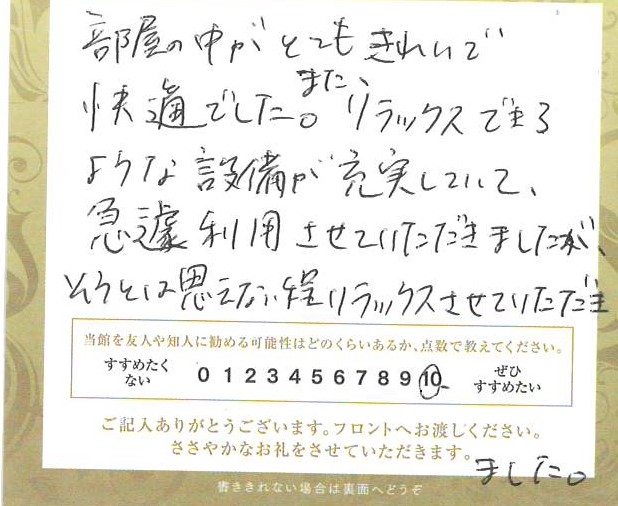 部屋の中がとてもきれいで
また、
快適でした。リラックスできる
ような設備が充実していて、
急遽利用させていただきましたが、
そうとは思えない程リラックスさせていただき
当館を友人や知人に勧める可能性はどのくらいあるか、点数で教えてください。
すすめたくない 0 1 2 3 4 5 6 7 8 9 10 ぜひすすめたい
ご記入ありがとうございます。フロントへお渡しください。
ささやかなお礼をさせていただきます。
ました。
書ききれない場合は裏面へどうぞ